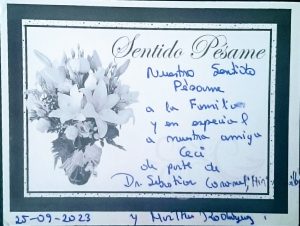 Sentido Pésame
Nuestro Sentido
Pésame
a la Familia
y en especial
a nuestra amiga
Ceci
de parte de
Dr. Sebastian
25-09-2023 y Rodriguez